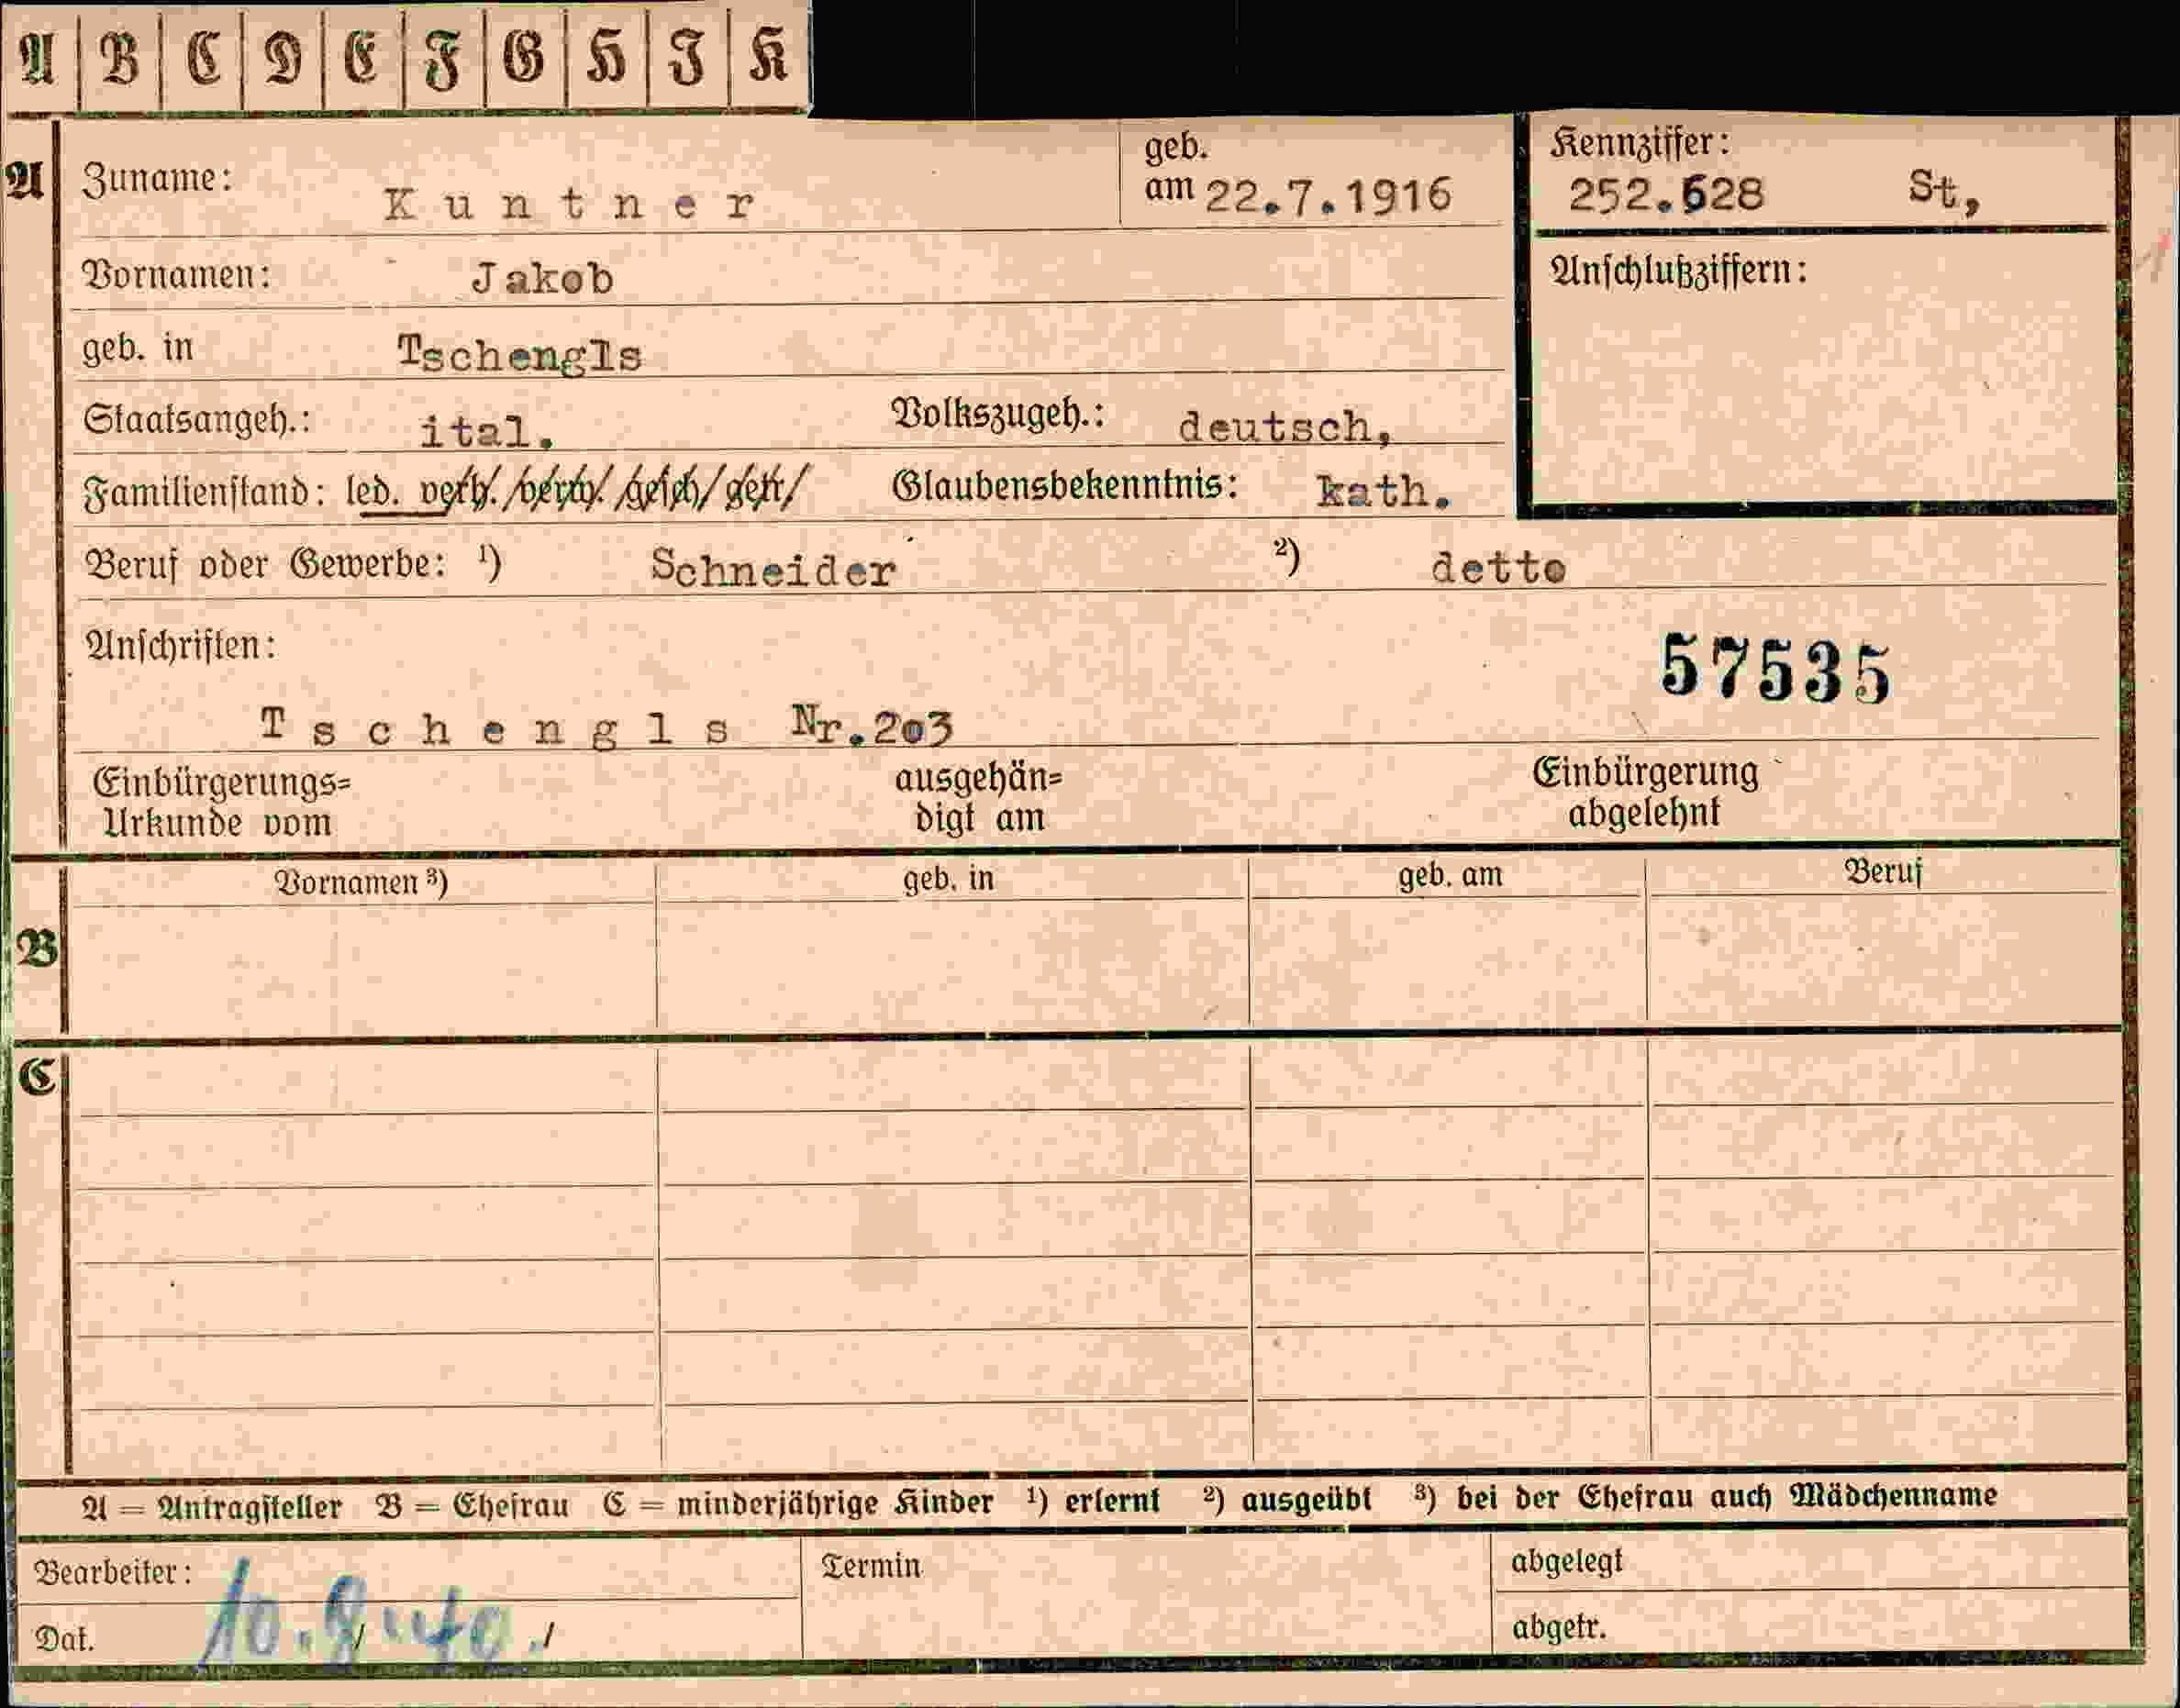 A B C D E F G H I K
A Zuname: Kuntner geb. am 22.7.1916 Kennziffer: 252.628 St,
Vornamen: Jakob Anschlußziffern:
geb. in Tschengls
Staatsangeh.: ital. Volkszugeh.: deutsch,
Familienstand: led. verh. verw. gesch. getr. Glaubensbekenntnis: kath.
Beruf oder Gewerbe: ¹) Schneider ²) detto
Anschriften: 57535
Tschengls Nr.203
Einbürgerungs= ausgehän= Einbürgerung
Urkunde vom digt am abgelehnt
B Vornamen ³) geb. in geb. am Beruf
C
A = Antragsteller B = Ehefrau C = minderjährige Kinder ¹) erlernt ²) ausgeübt ³) bei der Ehefrau auch Mädchenname
Bearbeiter: Termin abgelegt
Dat. abgetr.